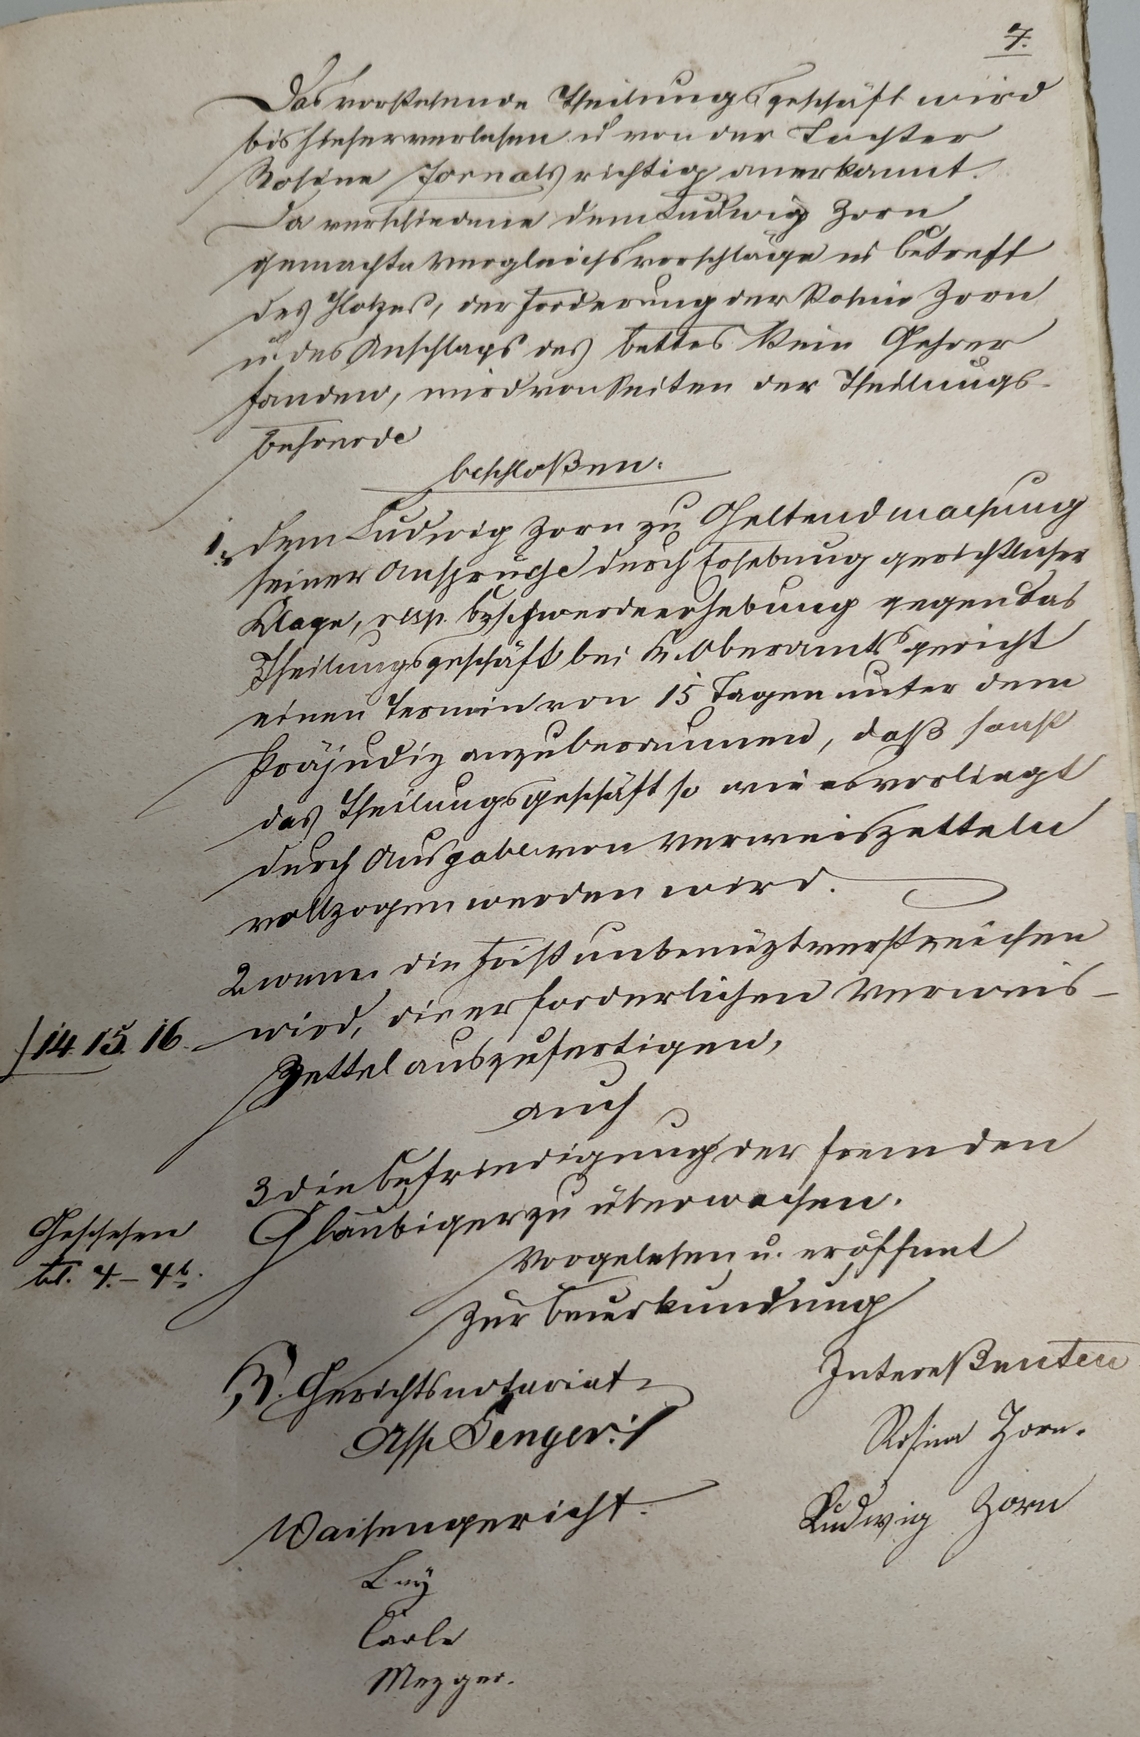 7.
Das vorstehende Theilungsgeschäft wird
bis hieher verlesen u von der Tochter
Rosine Zorn als richtig anerkannt.
Da verschiedene dem Ludwig Zorn
gemachte Vergleichsvorschläge in betreff
des Holzes, der Forderung der Rosine Zorn
u. des Anschlags des Bettes kein Gehör
fanden, wird von Seiten der Theilungs-
behoerde
beschloßen:
1., dem Ludwig Zorn zu Geltendmachung
seiner Ansprüche durch Erhebung gerichtlicher
Klage, resp. Beschwerdeerhebung gegen das
Theilungsgeschäft bei K. Oberamtsgericht
einen Termin von 15 Tagen unter dem
Präjudiz anzuberaumen, daß sonst
das Theilungsgeschäft so wie es vorliegt
durch Ausgabe von Verweiszetteln
vollzogen werden wird.
2 wenn die Frist unbenüzt verstreichen
wird, die erforderlichen Verweis-
/14. 15. 16.
Zettel auszufertigen,
auch
3 die Befriedigung der fremden
Gläubiger zu überwachen.
Geschehen
bl. 4. – 4b.
Vorgelesen u. eröffnet
Zur Beurkundung
K. Gerichtsnotariat
Ass. Senger
Intereßenten
Rosina Zorn.
Ludwig Zorn
Waisengericht.
Lay
Carle
Mezger.